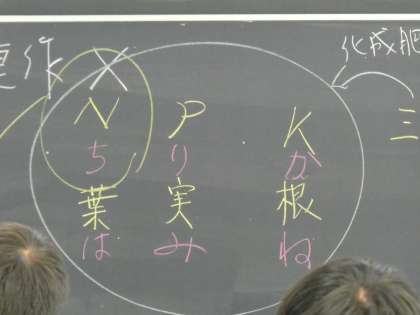 連作 ×
化成肥
三
N P K
ち り か
葉 実 根
は み ね